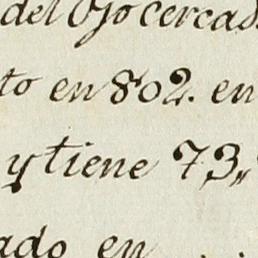 del Ojo cercad
to en 802. en
y tiene 73,,
ado en